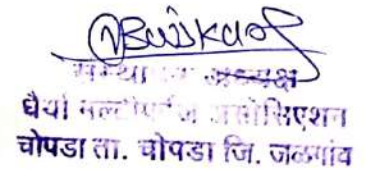 संस्थापक अध्यक्ष
धैर्या मल्टीपर्पज असोसिएशन
चोपडा ता. चोपडा जि. जळगांव